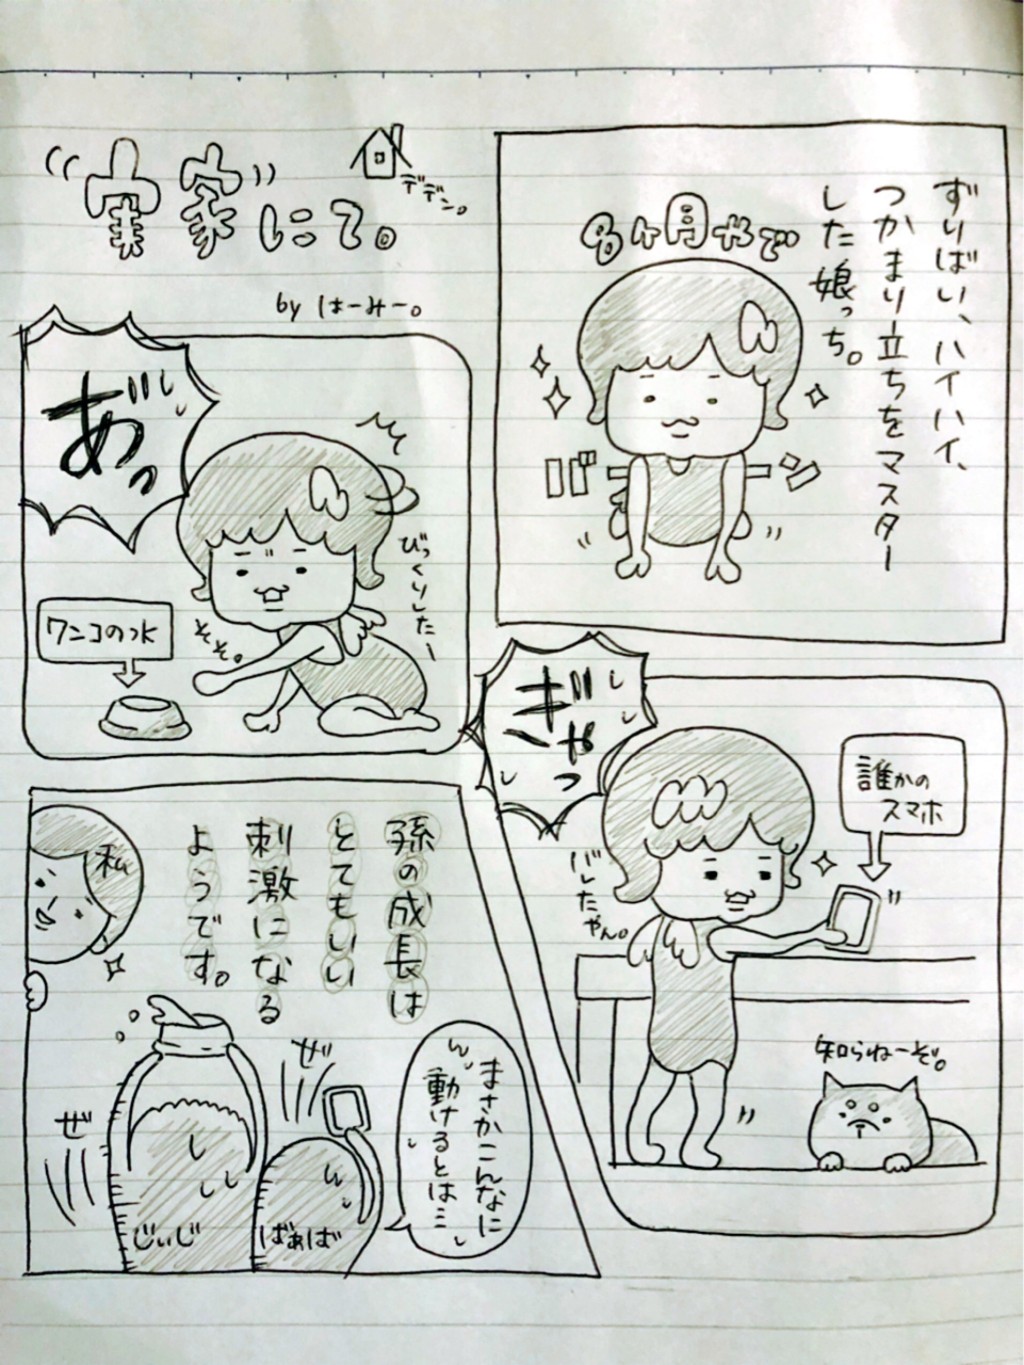 実家にて。
デデン。
by はーみー。
ずりばい、ハイハイ、
つかまり立ちをマスター
した娘っち。
8ヶ月やで
バーン
あ゛っ
びっくりしたー
そそ。
ワンコの水
ぎゃっ
誰かの
スマホ
バレたやん。
知らねーぞ。
孫の成長は
とてもいい
刺激になる
ようです。
私
まさかこんなに
動けるとは…
ん
ゼ
ゼ
じぃじ
ばぁば